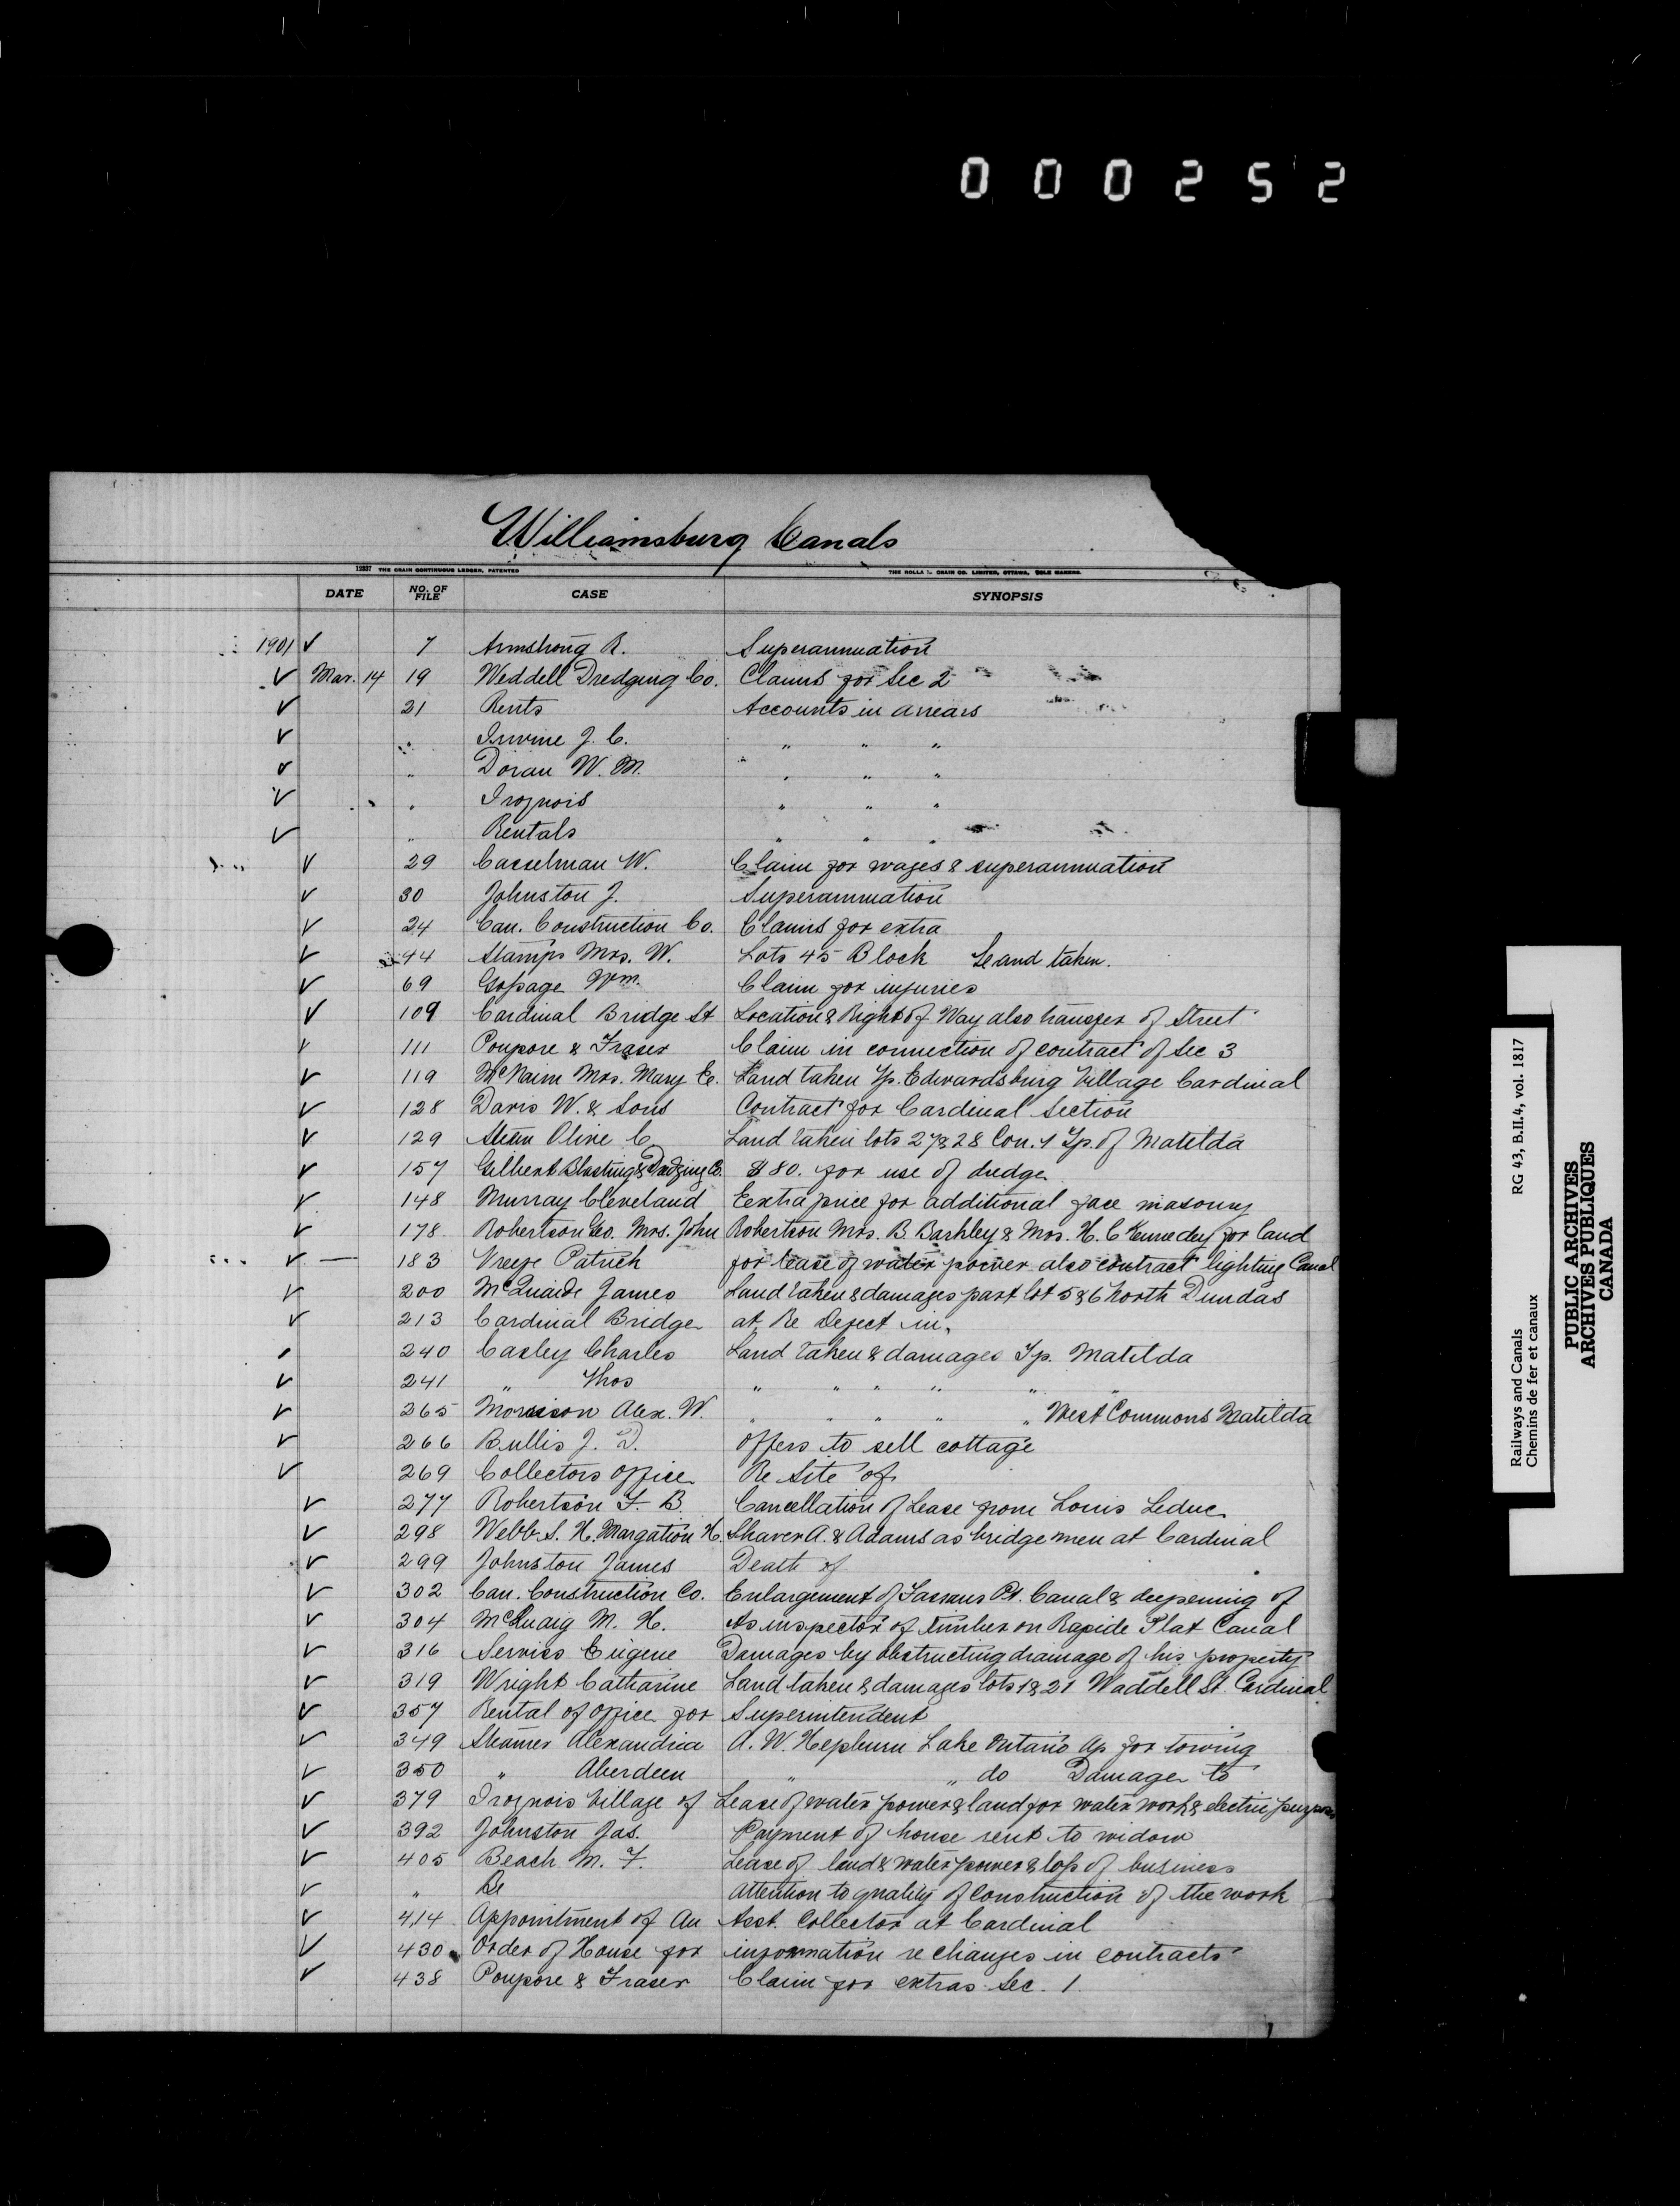 0 0 0 2 5 2
Williamsburg Canals
12337 THE CRAIN CONTINUOUS LEDGER, PATENTED THE ROLLA L. CRAIN CO. LIMITED, OTTAWA, SOLE MAKERS.
DATE NO. OF FILE CASE SYNOPSIS
1901 ✓ 7 Armstrong R. Superannuation
✓ Mar. 14 19 Weddell Dredging Co. Claims for Sec 2
✓ 21 Rents Accounts in arrears
✓ " Irvine J. C. " " "
✓ " Doran W. M. " " "
✓ " Iroquois " " "
✓ " Rentals " " "
✓ 29 Casselman W. Claim for wages & superannuation
✓ 30 Johnston J. Superannuation
✓ 24 Can. Construction Co. Claims for extra
✓ 44 Stamps Mrs. W. Lots 45 Block Land taken.
✓ 69 Gossage Wm. Claim for injuries
✓ 109 Cardinal Bridge St Location & Right of Way also transfer of Street
✓ 111 Poupore & Fraser Claim in connection of contract of Sec 3
✓ 119 McNairn Mrs. Mary E. Land taken Tp. Edwardsburg Village Cardinal
✓ 128 Davis W. & Sons Contract for Cardinal Section
✓ 129 Olive C. Land taken lots 27 & 28 Con. 1 Tp. of Matilda
✓ 157 Gilbert Blasting & Dredging Co. $80. for use of dredge
✓ 148 Murray Cleveland Eextra price for additional face masonry
✓ 178 Robertson Geo. Mrs. John Robertson Mrs. B. Barkley & Mrs. H. C Kennedy for land
✓ — 183 Patrick for lease of water power also contract lighting Canal
✓ 200 McQuaide James Land taken & damages part lot 5 & 6 North Dundas
✓ 213 Cardinal Bridge at Re Defect in,
✓ 240 Casley Charles Land taken & damages Tp. Matilda
✓ 241 " Thos " " " " "
✓ 265 Morrison Alex. W. " " " " " West Commons Matilda
✓ 266 Bullis J. D. Offers to sell cottage
✓ 269 Collectors Office Re Site of
✓ 277 Robertson F. B. Cancellation of Lease from Louis Leduc
✓ 298 Webb S. H. Margation H. Shaver A. & Adams as bridge men at Cardinal
✓ 299 Johnston James Death of
✓ 302 Can. Construction Co. Enlargement of Farrans Pt. Canal & deepening of
✓ 304 McQuaig M. H. As inspector of timber on Rapide Plat Canal
✓ 316 Serviss Eugene Damages by obstructing drainage of his property
✓ 319 Wright Catharine Land taken & damages lots 1 & 21 Waddell St. Cardinal
✓ 357 Rental of Office for Superintendent
✓ 349 Steamer Alexandria A. W. Hepburn Lake Ontario Ap for towing
✓ 350 " Aberdeen " " do Damage to
✓ 379 Iroquois Village of Lease of water power & land for water work & electric purposes
✓ 392 Johnston Jas. Payment of house rent to widow
✓ 405 Beach M. F. Lease of land & water power & loss of business
✓ " Re Attention to quality of construction of the work
✓ 414 Appointment of An Asst. Collector at Cardinal
✓ 430 Order of House for information re changes in contracts
✓ 438 Poupore & Fraser Claim for extras Sec. 1
Railways and Canals RG 43, B.II.4, vol. 1817
Chemins de fer et canaux
PUBLIC ARCHIVES
ARCHIVES PUBLIQUES
CANADA